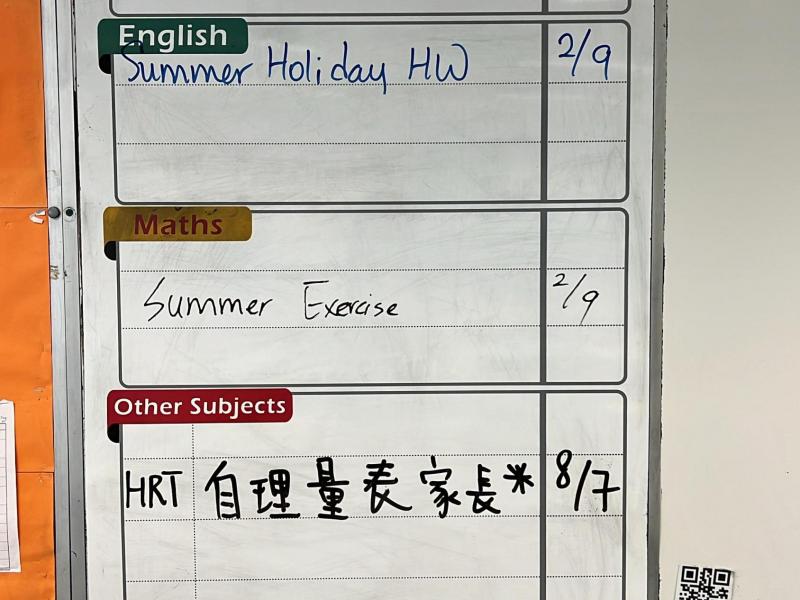 English
Summer Holiday HW 2/9
Maths
Summer Exercise 2/9
Other Subjects
HRT 自理量表家長* 8/7